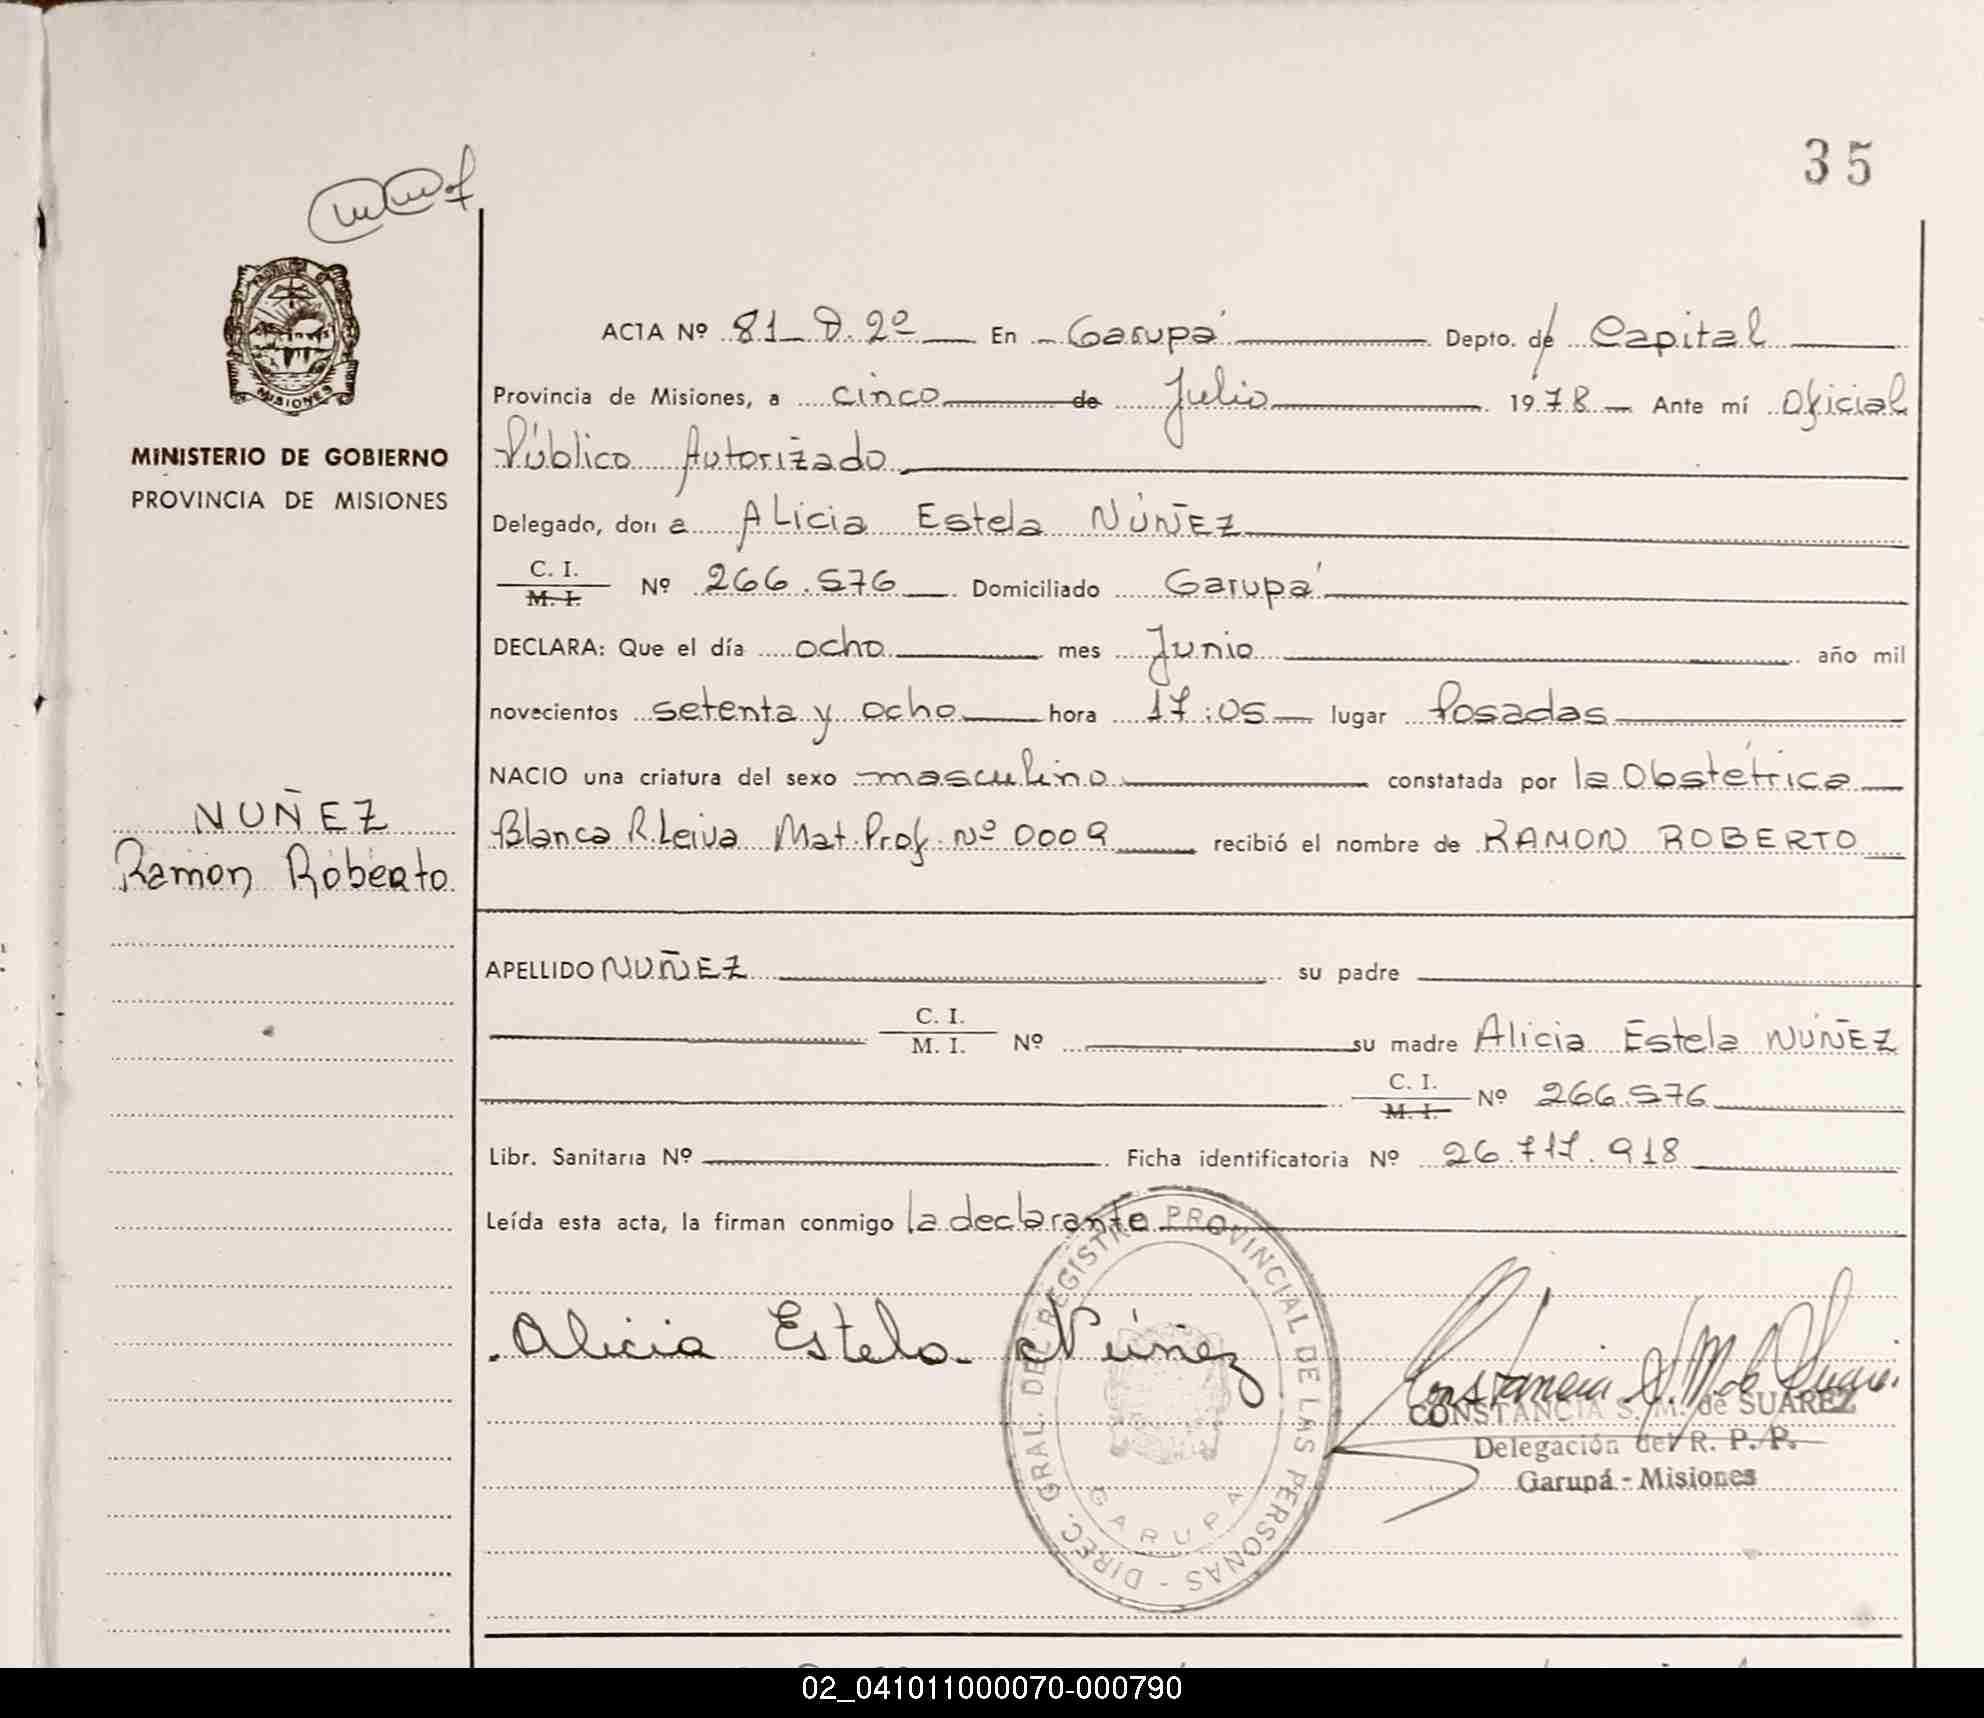 35
MINISTERIO DE GOBIERNO
PROVINCIA DE MISIONES
NUÑEZ
Ramon Roberto
ACTA Nº 81 D. 2º En Garupá Depto. de Capital
Provincia de Misiones, a cinco de Julio 1978 Ante mí Oficial
Público Autorizado
Delegado, don a Alicia Estela NÚÑEZ
C. I.
M. I. Nº 266.576 Domiciliado Garupá
DECLARA: Que el día ocho mes Junio año mil
novecientos setenta y ocho hora 17:05 lugar Posadas
NACIO una criatura del sexo masculino constatada por la Obstétrica
Blanca R. Leiva Mat. Prof. Nº 0009 recibió el nombre de RAMON ROBERTO
APELLIDO NUÑEZ su padre
C. I.
M. I. Nº su madre Alicia Estela NUÑEZ
C. I.
M. I. Nº 266.576
Libr. Sanitaria Nº Ficha identificatoria Nº 26.717.918
Leída esta acta, la firman conmigo la declarante
Alicia Estela Núñez
DIREC. GRAL. DEL REGISTRO PROVINCIAL DE LAS PERSONAS -
GARUPA
Constancia S. M. de Suarez
CONSTANCIA S. M. de SUAREZ
Delegación del R. P. P.
Garupá - Misiones
02_041011000070-000790